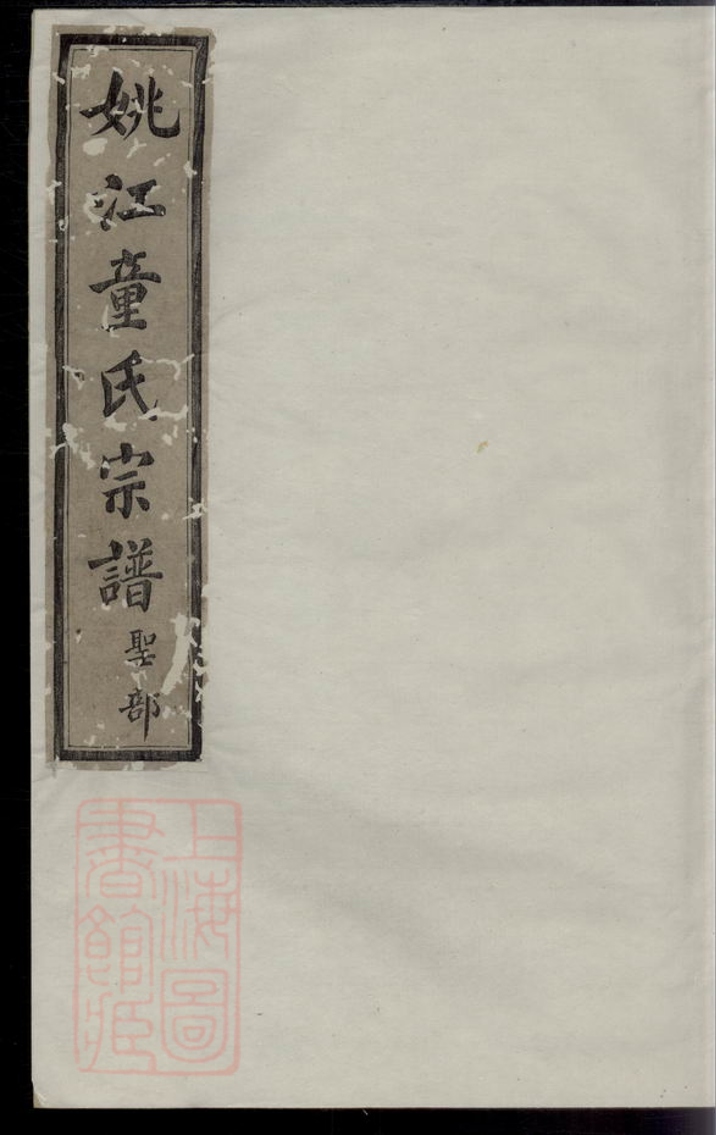 姚江童氏宗譜
聖部
上海圖
書館藏